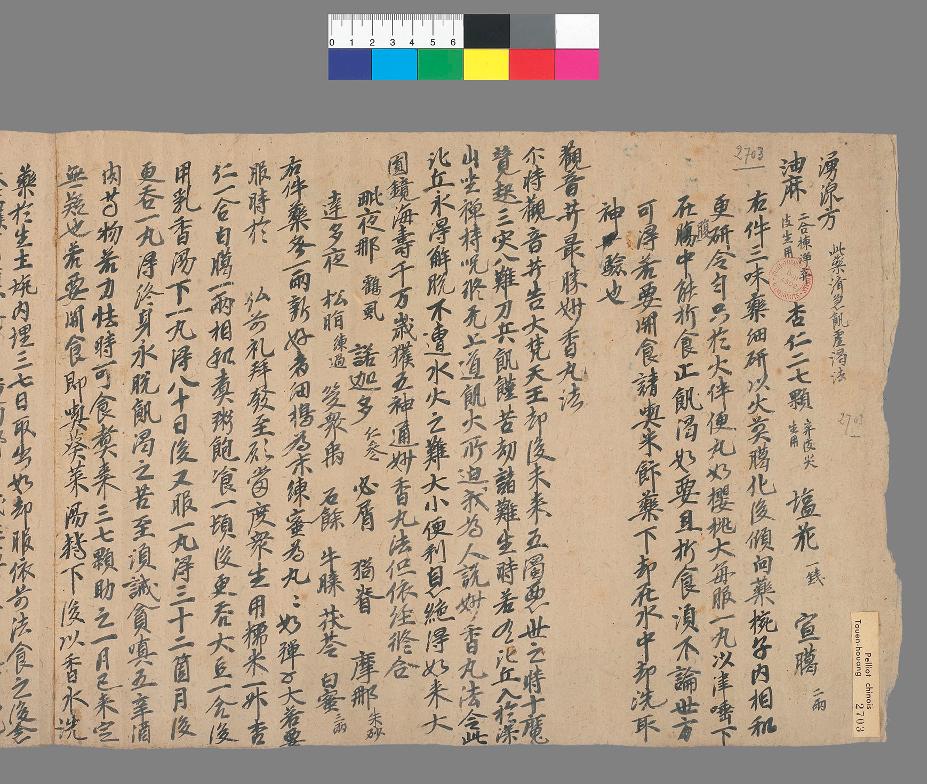 湧泉方 此藥濟急飢虛渴法
油麻 二合揀淨菩皮生用 杏仁二七顆 去皮尖生用 塩花 一錢 宣臈 二兩
右件三味藥細研以火鎔臈化後傾向藥椀子內相和
更研令勻只於火伴便丸如櫻桃大每服一丸以津嚥下
在腸中能折食止飢渴如要且折食須不論世方
可得若要開食請喫米飲藥下却在水中却洗取
神驗也
觀音菩薩最勝妙香丸法
尒時觀音菩薩告大梵天王却後未來五濁惡世之時十魔
競起三灾八難刀兵飢饉苦劫諸難生時若有比丘入於深
山坐禪持呪修无上道飢火所迫我為人說妙香丸法令此
比丘永得解脫不遭水火之難大小便利息絕得如來大
圓鏡海壽千万歲獲五神通妙香丸法但依經修合
毗夜那 鶴虱 諾迦多 仁參 必屑 猫脊 摩那 朱砂
達多夜 松脂 練過 笑衆禹 石餘 牛膝 茯苓 白蜜 三兩
右件藥各一兩新好者細擣為末練蜜為丸丸如彈子大若要
服時於 仏前礼拜發至願當度衆生用粳米一升杏
仁一合白臈一兩相和煑粥飽飡一頓後更吞大豆一合後
用乳香湯下一丸得八十日後又服一丸得三十二箇月後
更吞一丸得終身永脫飢渴之苦至須誡貪嗔五辛酒
肉等物若力怯時可食棗來三七顆助之一月已來定
無疑也若要開食即喫葵菜湯轉下後以香水洗
藥於生土坑內埋三七日取出如却服依前法食之後
2703
2703
Pelliot chinois
Touen-houang
2703
0 1 2 3 4 5 6